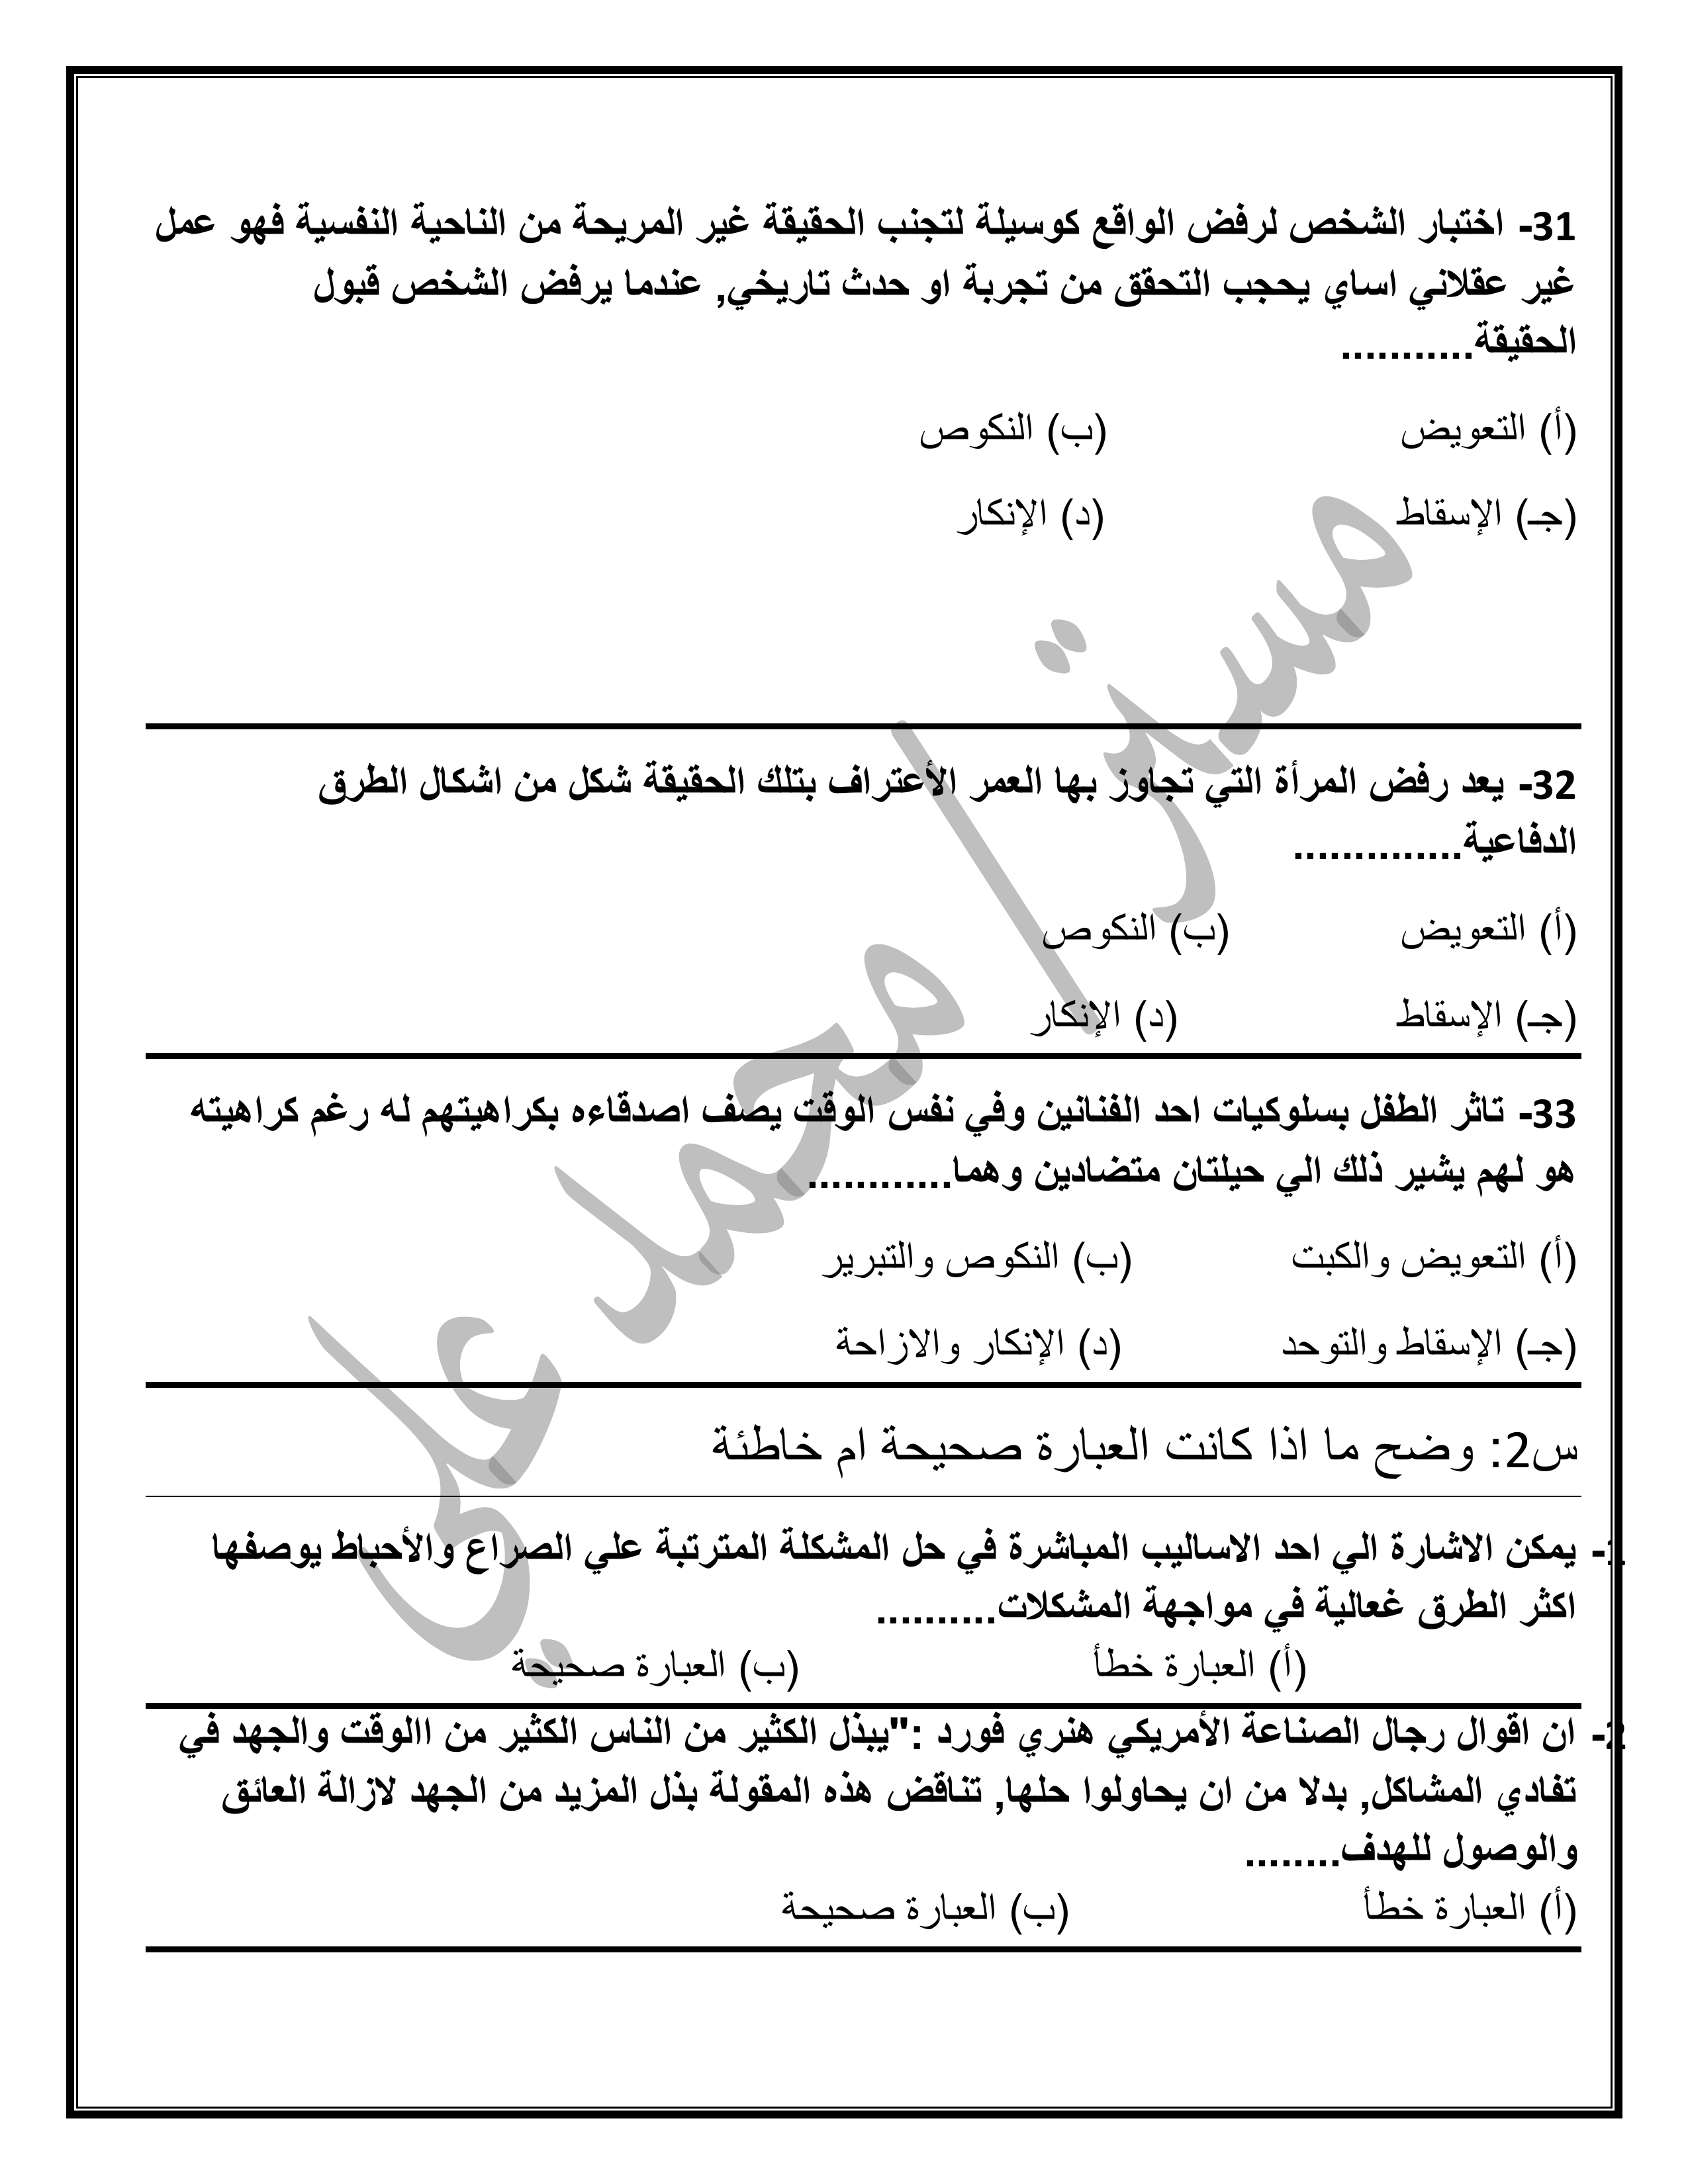 31- اختبار الشخص لرفض الواقع كوسيلة لتجنب الحقيقة غير المريحة من الناحية النفسية فهو عمل
غير عقلاني اساي يحجب التحقق من تجربة او حدث تاريخي, عندما يرفض الشخص قبول
الحقيقة...........
(أ) التعويض (ب) النكوص
(جـ) الإسقاط (د) الإنكار
32- يعد رفض المرأة التي تجاوز بها العمر الأعتراف بتلك الحقيقة شكل من اشكال الطرق
الدفاعية..............
(أ) التعويض (ب) النكوص
(جـ) الإسقاط (د) الإنكار
33- تاثر الطفل بسلوكيات احد الفنانين وفي نفس الوقت يصف اصدقاءه بكراهيتهم له رغم كراهيته
هو لهم يشير ذلك الي حيلتان متضادين وهما............
(أ) التعويض والكبت (ب) النكوص والتبرير
(جـ) الإسقاط والتوحد (د) الإنكار والازاحة
س2: وضح ما اذا كانت العبارة صحيحة ام خاطئة
1- يمكن الاشارة الي احد الاساليب المباشرة في حل المشكلة المترتبة علي الصراع والأحباط يوصفها
اكثر الطرق غعالية في مواجهة المشكلات..........
(أ) العبارة خطأ (ب) العبارة صحيحة
2- ان اقوال رجال الصناعة الأمريكي هنري فورد :"يبذل الكثير من الناس الكثير من االوقت والجهد في
تفادي المشاكل, بدلا من ان يحاولوا حلها, تناقض هذه المقولة بذل المزيد من الجهد لازالة العائق
والوصول للهدف........
(أ) العبارة خطأ (ب) العبارة صحيحة
مستر/ محمد علي